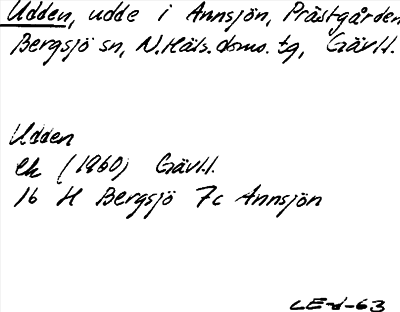 Udden, udde i Annsjön, Prästgården
Bergsjö sn, N. Häls. dsmo. tg, Gävl.l.
Udden
ek (1960) Gävl.l.
16 H Bergsjö 7c Annsjön
LE-d-63